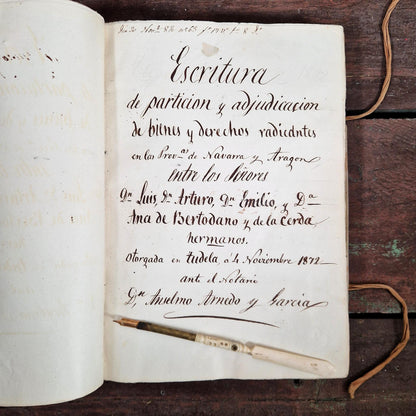 Escritura
de particion y adjudicacion
de bienes y derechos radicantes
en las Prov.as de Navarra y Aragon
entre los Señores
Dn. Luis, Dn. Arturo, Dn. Emilio, y Da.
Ana de Bertodano y de la Cerda,
hermanos.
Otorgada en Tudela, á 4 Noviembre 1872
ante el Notario
Dn. Anselmo Arnedo y Garcia